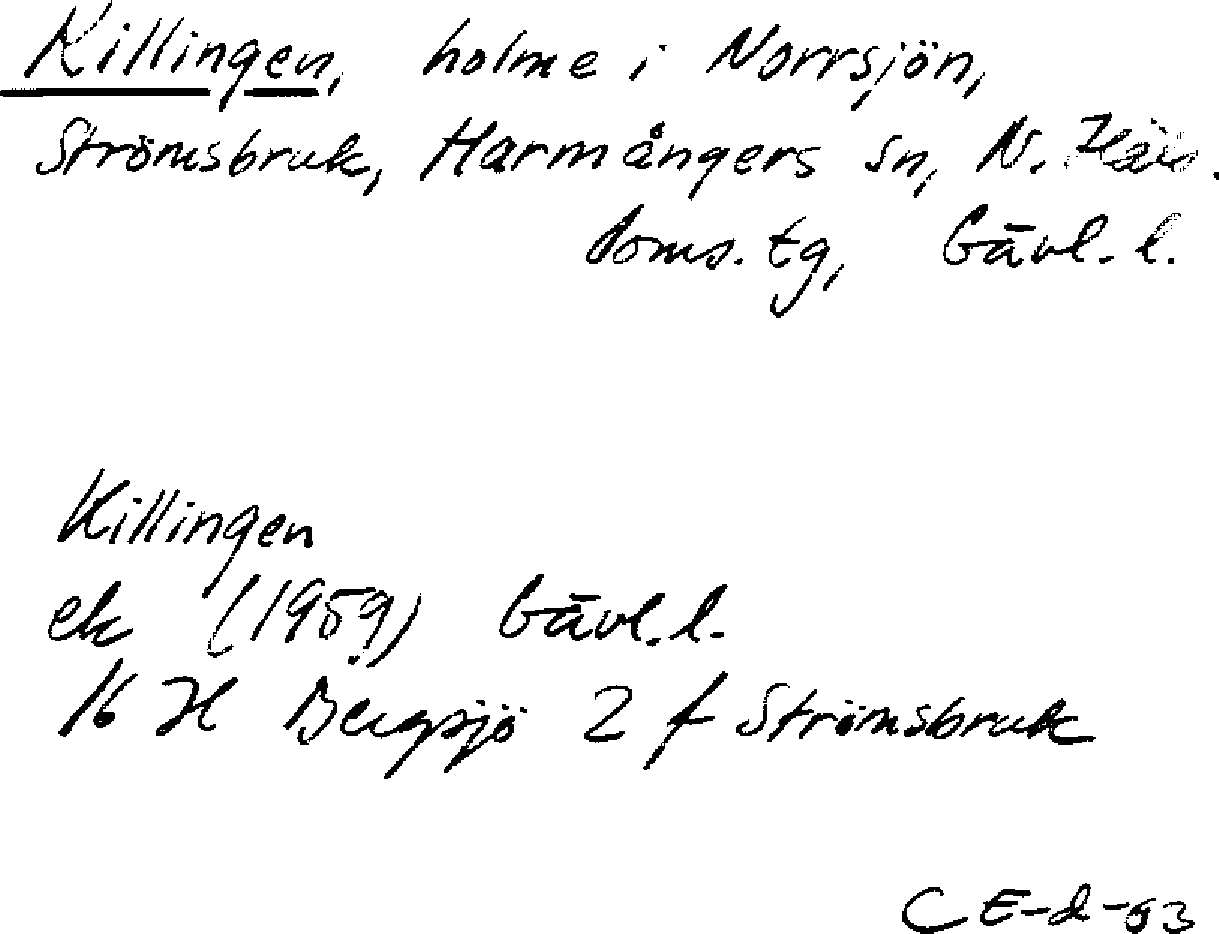 Killingen, holme i Norrsjön,
Strömsbruk, Harmångers sn, N. Häls.
doms. tg, Gävl. l.
Killingen
ek (1959) Gävl. l.
16 H Bergsjö 2 f Strömsbruk